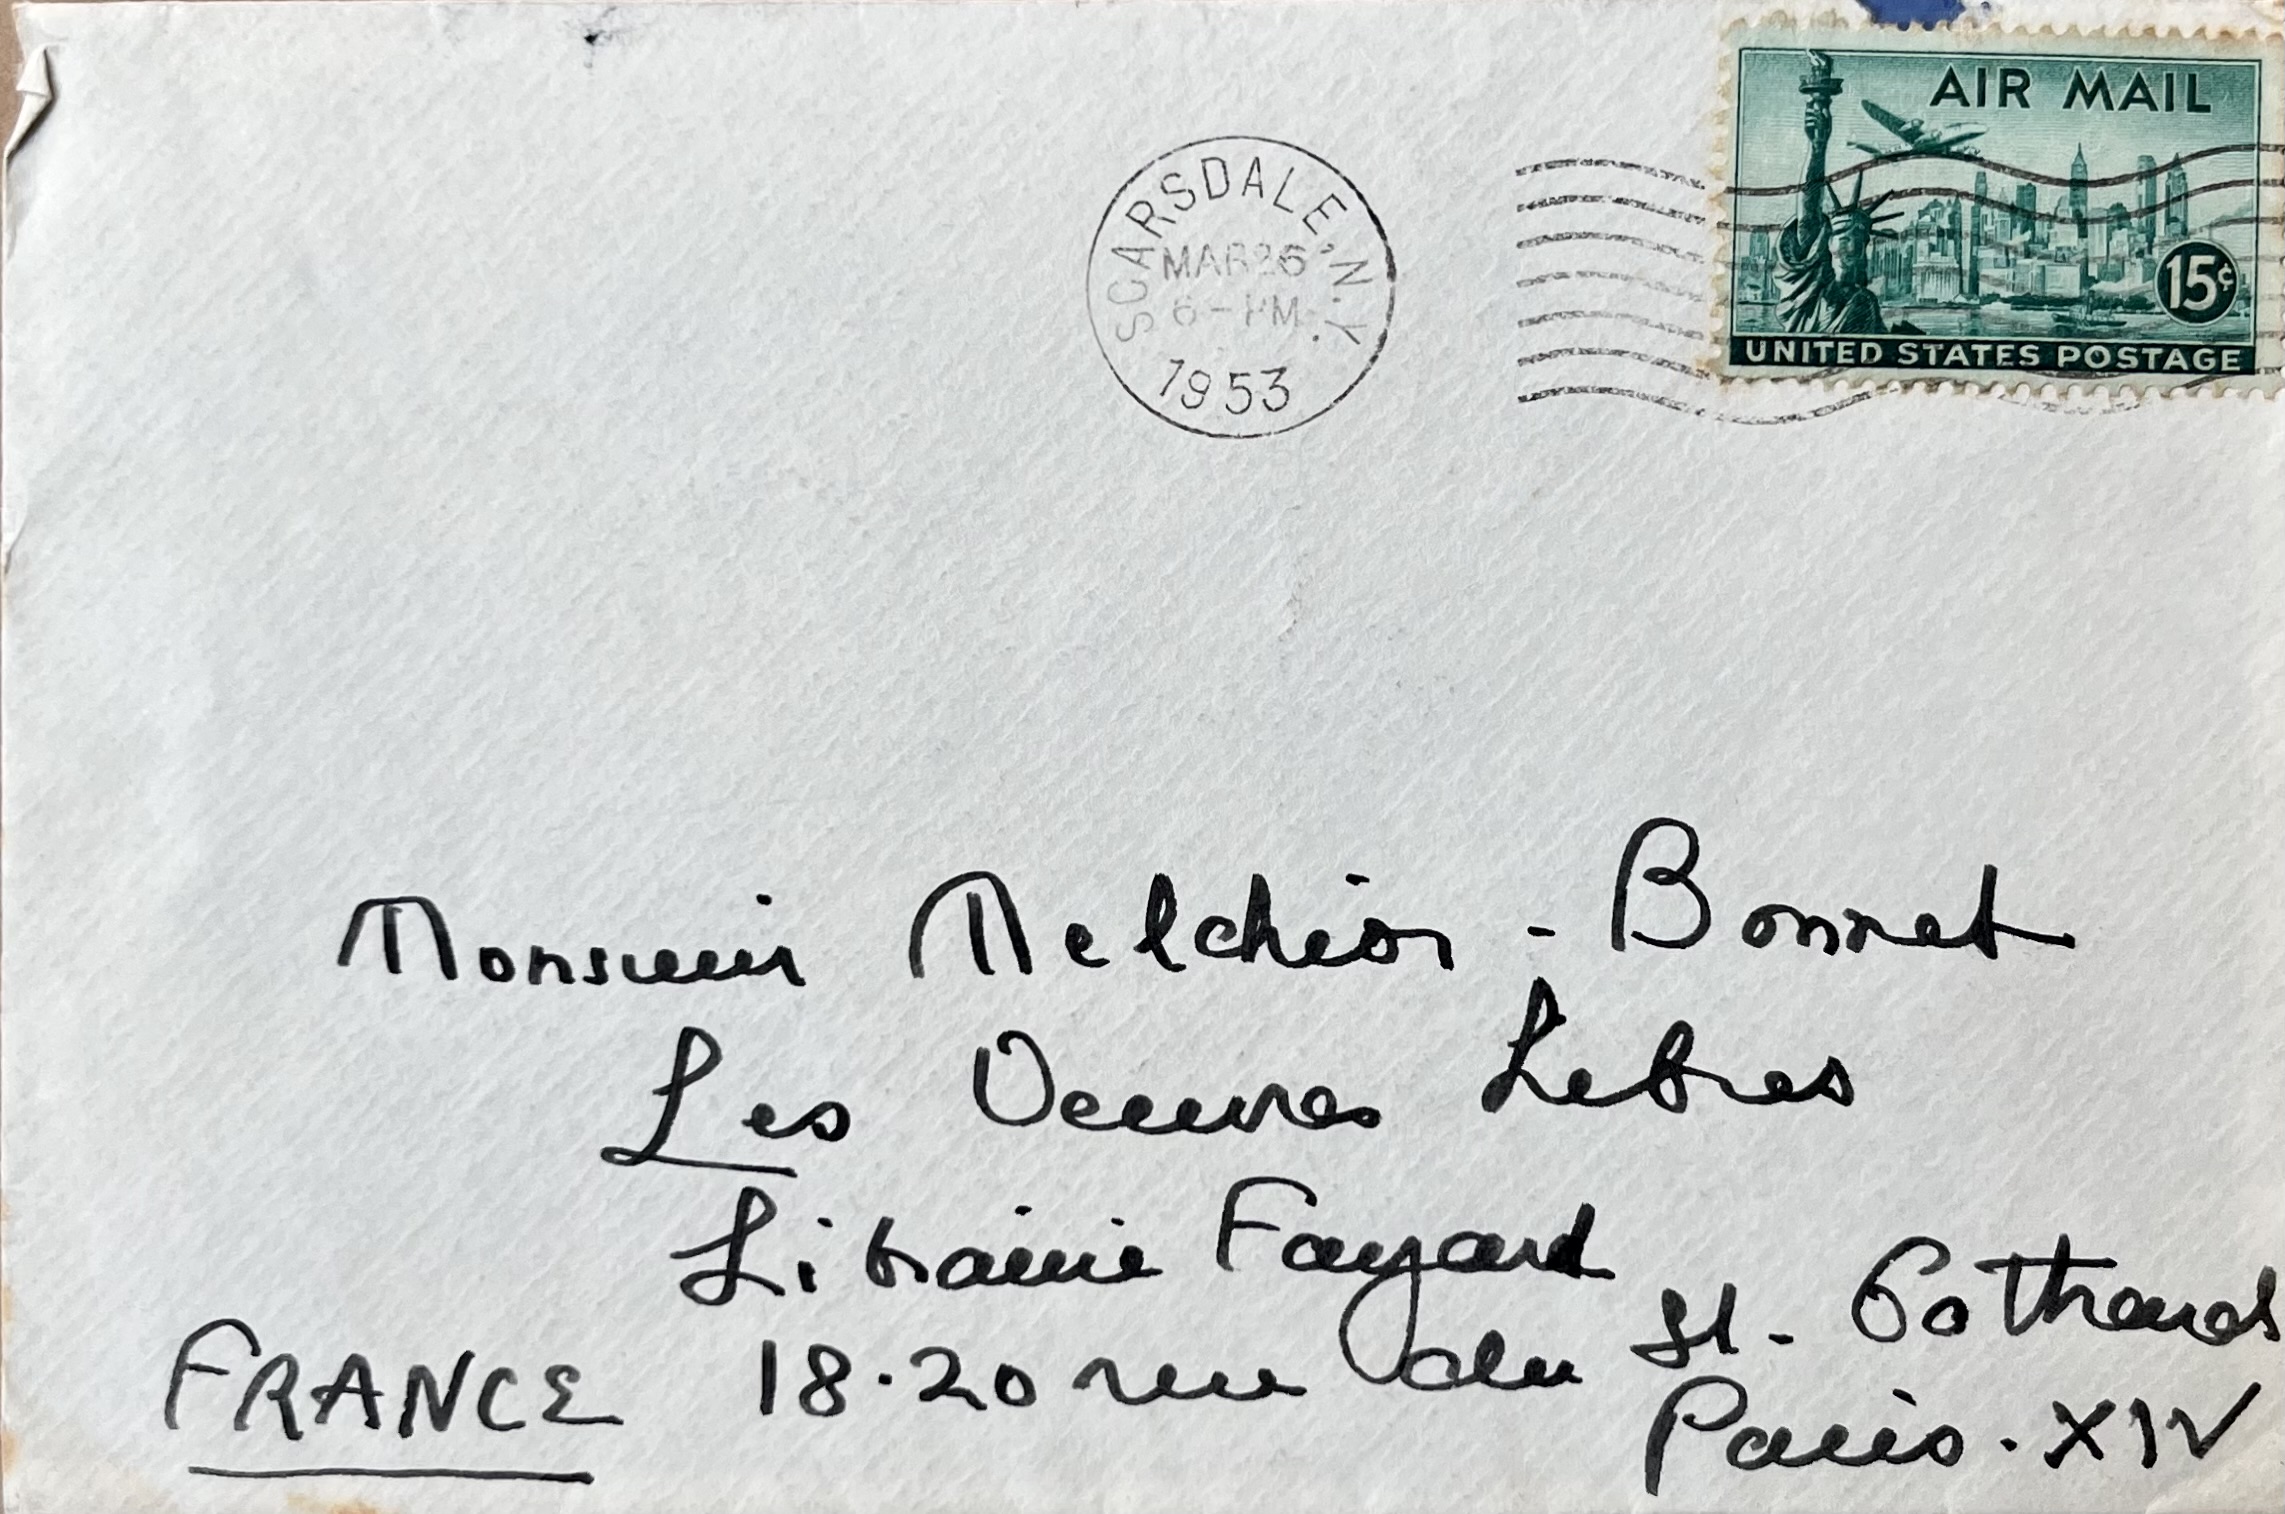 AIR MAIL
15¢
UNITED STATES POSTAGE
SCARSDALE, N.Y.
MAR 26
6 - PM
1953
Monsieur Melchior - Bonnet
Les Oeuvres Libres
Librairie Fayard
18.20 rue du St. Gothard
Paris. XIV
FRANCE